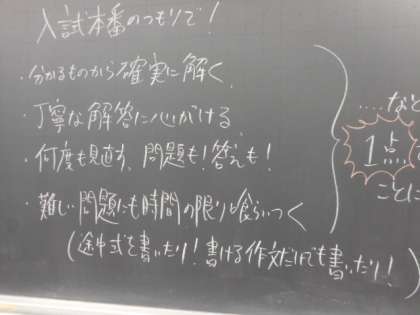 入試本番のつもりで!
・分かるものから確実に解く。
・丁寧な解答に心がける。
・何度も見直す、問題も!答えも!
・難しい問題にも時間の限り喰らいつく
(途中式を書いたり!書ける作文だけでも書いたり!)
….など
1点
ことに